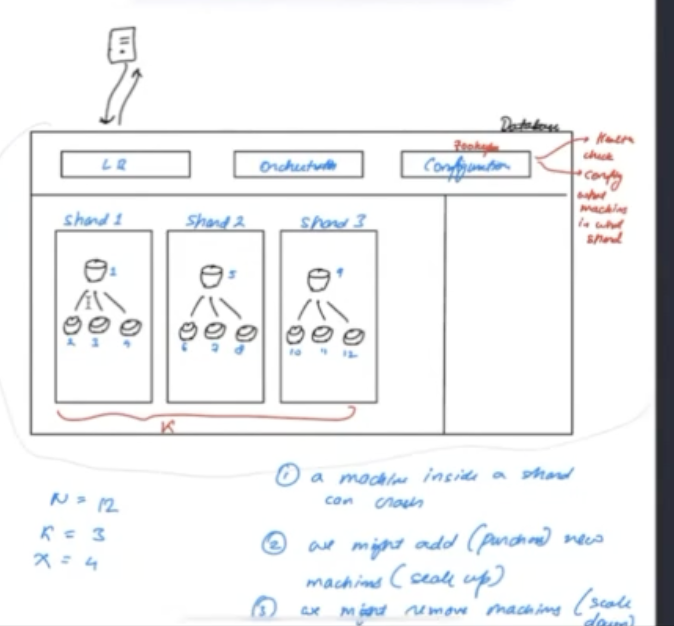 Database
Zookeeper
LB
Orchestrator
Configuration
Health
check
Config
what
machine
is in what
shard
Shard 1
Shard 2
Shard 3
1
5
9
2 3 4
6 7 8
10 11 12
K
N = 12
K = 3
X = 4
① a machine inside a shard
can crash
② we might add (purchase) new
machines (scale up)
③ we might remove machines (scale
down)